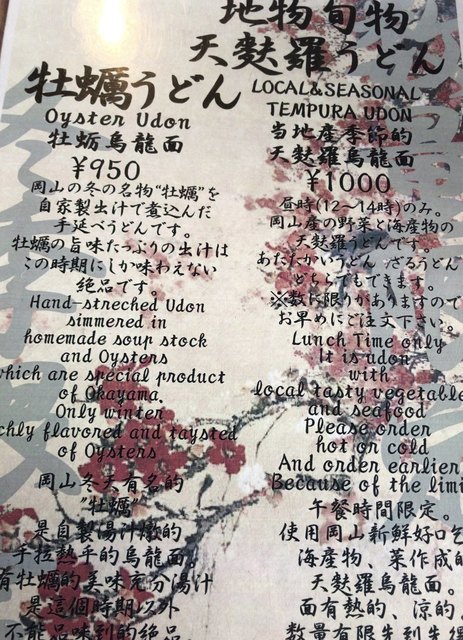 牡蠣うどん
Oyster Udon
牡蛎烏龍面
¥950
岡山の冬の名物"牡蠣"を
自家製出汁で煮込んだ
手延べうどんです。
牡蠣の旨味たっぷりの出汁は
この時期にしか味わえない
絶品です。
Hand-streched Udon
simmered in
homemade soup stock
and Oysters
which are special product
of Okayama.
Only winter
chly flavored and taysted
of Oysters
岡山冬天有名的
"牡蠣"
是自製湯汁燉的
手拉熱手的烏龍面。
有牡蠣的美味充分湯汁
是這個時期以外
不能品味到的絶品
地物旬物
天麩羅うどん
LOCAL&SEASONAL
TEMPURA UDON
当地産季節的
天麩羅烏龍面
¥1000
昼時(12〜14時)のみ。
岡山産の野菜と海産物の
天麩羅うどんです。
あたたかいうどん ざるうどん
どちらでもできます。
※数に限りがありますので
お早めにご注文下さい。
Lunch Time only
It is udon
with
local tasty vegetable
and seafood
Please order
hot or cold
And order earlier
Because of the limi
午餐時間限定。
使用岡山新鮮好吃
海産物、菜作成的
天麩羅烏龍面。
面有熱的、涼的
数量有限先到先得